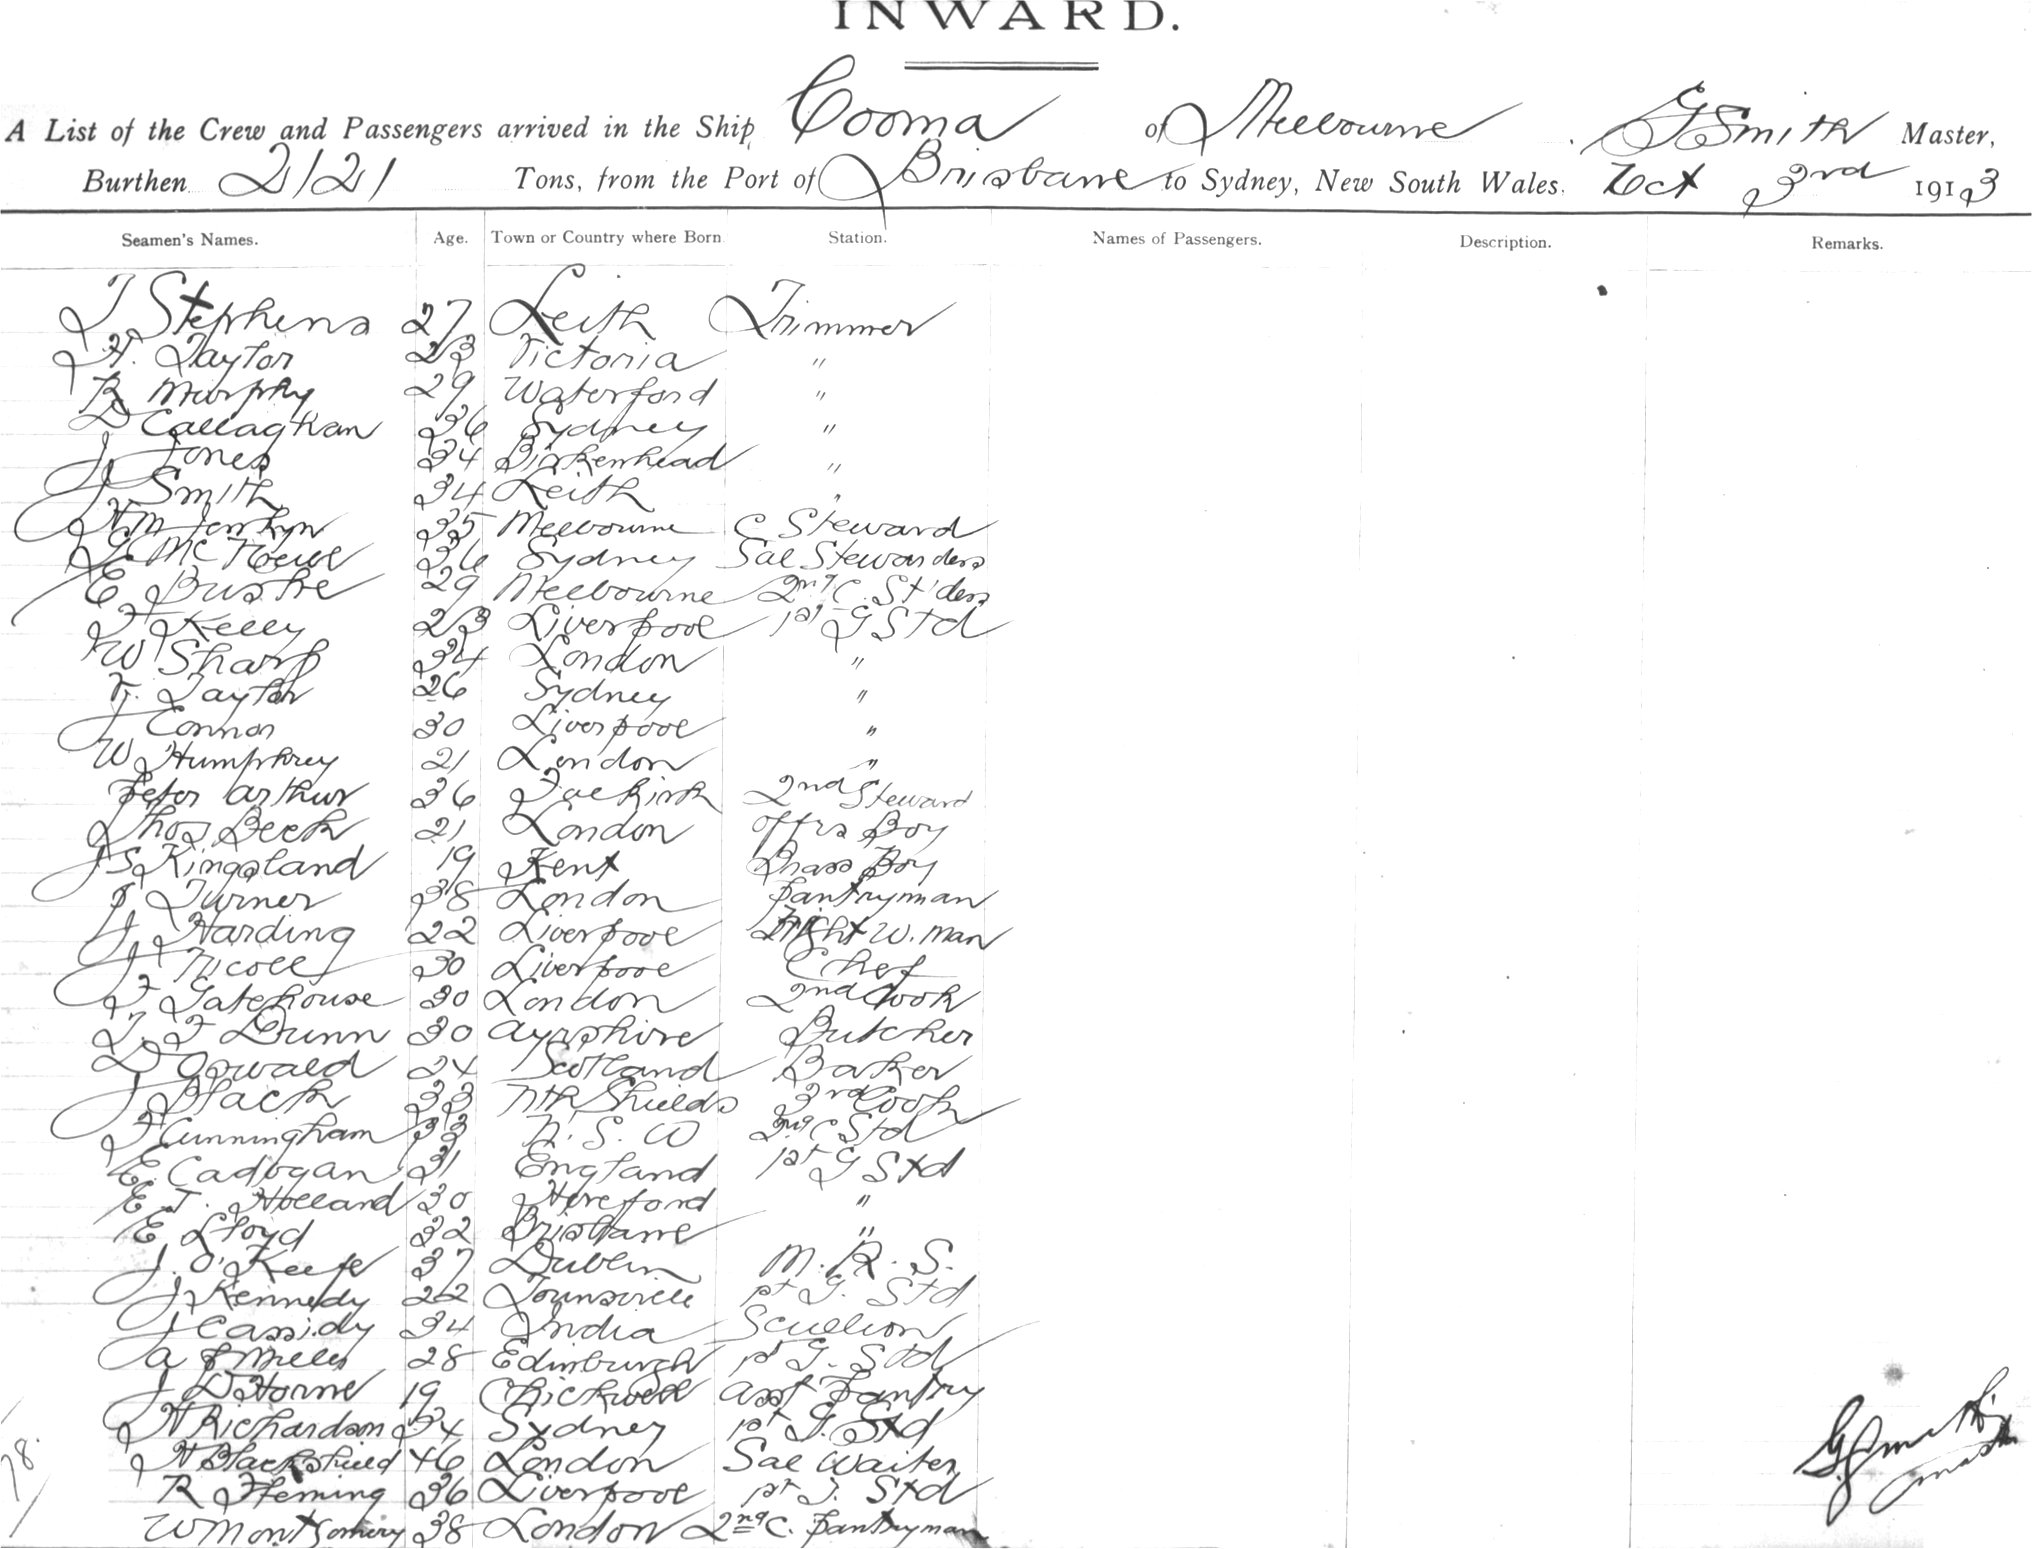 INWARD.
A List of the Crew and Passengers arrived in the Ship Cooma of Melbourne. G Smith Master,
Burthen 2121 Tons, from the Port of Brisbane to Sydney, New South Wales. Oct 3rd 1913
Seamen's Names. Age. Town or Country where Born Station. Names of Passengers. Description. Remarks.
T Stephens 27 Leith Trimmer
H. Taylor 23 Victoria "
R Murphy 29 Waterford "
D Callaghan 36 Sydney "
J Jones 34 Birkenhead "
J Smith 34 Leith "
H M Jenkyn 35 Melbourne C Steward
Mc 36 Sydney Sal Stewardess
E Buske 29 Melbourne 2nd C. St'dess
F Kelly 23 Liverpool 1st G Std
W Sharp 34 London "
F. Taylor 26 Sydney "
J Connor 30 Liverpool "
W Humphrey 21 London "
Peter Arthur 36 Falkirk 2nd Steward
Thos Beck 21 London Offrs Boy
J S Kingsland 19 Kent Brass Boy
J Turner 38 London Pantryman
J Harding 22 Liverpool Night W. man
J Nicoll 30 Liverpool Chef
F Gatehouse 30 London 2nd Cook
T. F Dunn 30 Ayrshire Butcher
D Oswald 24 Scotland Baker
J Black 33 Nth Shields 3rd Cook
F Cunningham 33 N. S. W 2nd C Std
E. Cadogan 31 England 1st G Std
E T. Holland 30 Hereford "
E Lloyd 32 Brisbane "
J. O'Keefe 37 Dublin M. R. S.
J Kennedy 22 Tounsville 1st G. Std
J Cassidy 34 India Scullion
A P Mills 28 Edinburgh 1st G. Std
J D Horne 19 Chickwell Asst Pantry
H Richardson 34 Sydney 1st G. Std
H Blackshield 46 London Sal Waiter
R Fleming 36 Liverpool 1st G. Std
W Montgomery 38 London 2nd C. Pantryman
78.
G Smith
Master